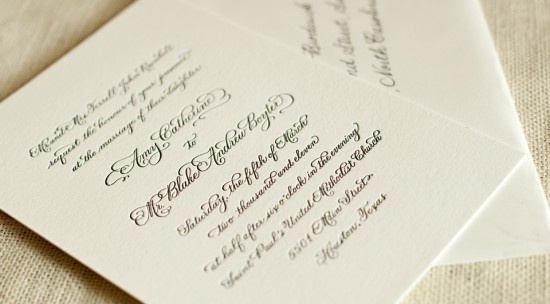 Mr. and Mrs. Terrell John
request the honour of your presence
at the marriage of their daughter
Amy Catherine
to
Mr. Blake Andrew Boyter
Saturday, the fifth of March
two thousand and eleven
at half after six o'clock in the evening
Saint Paul's United Methodist Church
5501 Main Street
Houston, Texas
nd Street
North Carolina